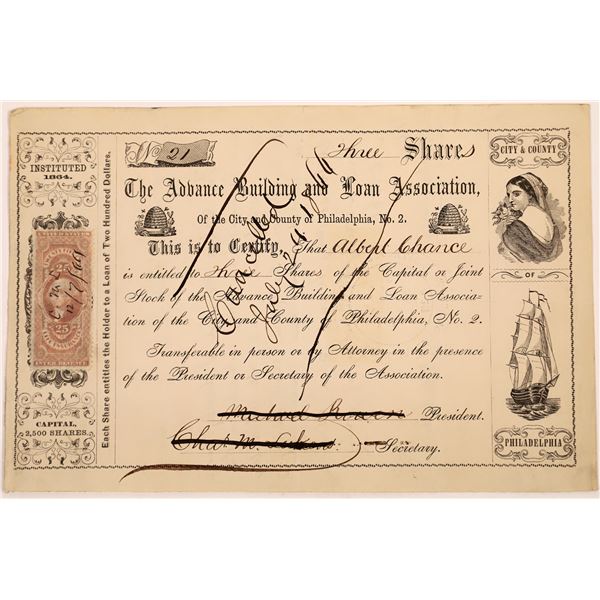 INSTITUTED
1864.
25
CAPITAL,
2,500 SHARES.
Each Share entitles the Holder to a Loan of Two Hundred Dollars.
No 21
Three Shares
The Advance Building and Loan Association,
Of the City and County of Philadelphia, No. 2.
This is to Certify, That Albert Chance
is entitled to Three Shares of the Capital or Joint
Stock of the Advance Building and Loan Associa-
tion of the City and County of Philadelphia, No. 2.
Transferable in person or by Attorney in the presence
of the President or Secretary of the Association.
President.
Chas. M. Secretary.
Cancelled
CITY & COUNTY
OF
PHILADELPHIA